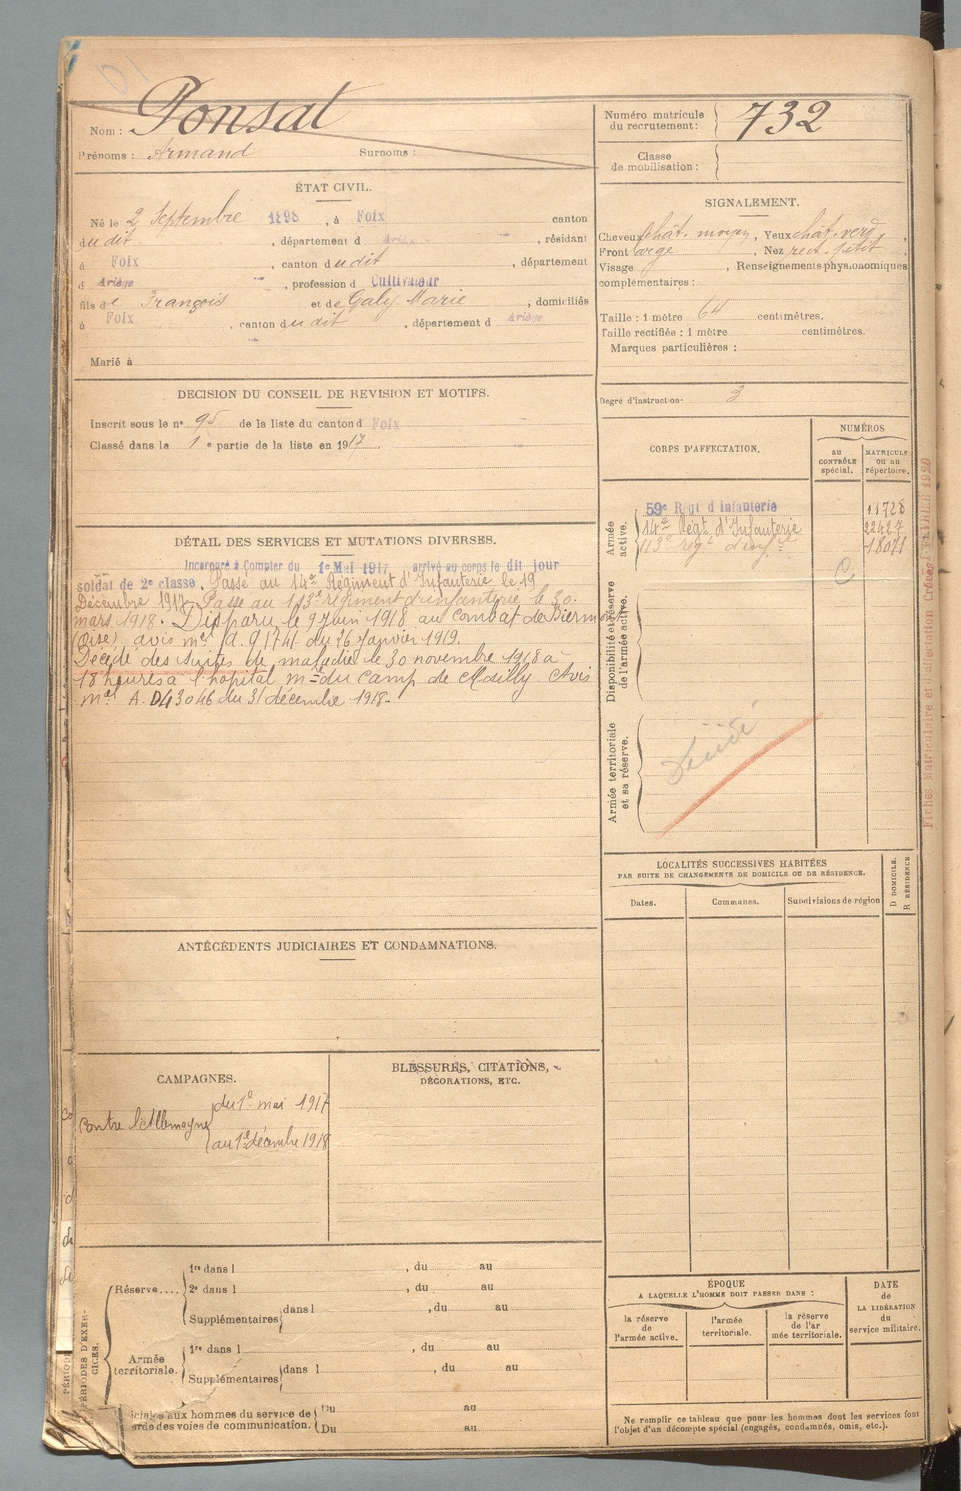 Nom : Ponsat
Prénoms : Armand Surnoms :
Numéro matricule du recrutement : 732
Classe de mobilisation :
ÉTAT CIVIL.
Né le 2 Septembre 1898, à Foix canton
dudit, département d Ariège, résidant
à Foix, canton dudit, département
d Ariège, profession d Cultivateur
fils de François et de Galy Marie, domiciliés
à Foix, canton dudit, département d Ariège
Marié à
SIGNALEMENT.
Cheveux chât. moyen, Yeux chât. verd.,
Front large, Nez rect. petit,
Visage , Renseignements physionomiques
complémentaires :
Taille : 1 mètre 64 centimètres.
Taille rectifiée : 1 mètre centimètres.
Marques particulières :
Degré d'instruction 3
DECISION DU CONSEIL DE REVISION ET MOTIFS.
Inscrit sous le n° 95 de la liste du canton d Foix
Classé dans la 1e partie de la liste en 1917.
CORPS D'AFFECTATION.
NUMÉROS
au CONTRÔLE spécial.
MATRICULE ou au répertoire.
Armée active.
59e Régt d'Infanterie 11728
14e Régt d'Infanterie 22427
113e régt d'infie 18071
C
Disponibilité et réserve de l'armée active.
Armée territoriale et sa réserve.
DÉTAIL DES SERVICES ET MUTATIONS DIVERSES.
Incorporé à Compter du 1er Mai 1917, arrivé au corps le dit jour
soldat de 2e classe. Passé au 14e Régiment d'Infanterie le 19
Décembre 1917. Passé au 113e régiment d'infanterie le 30
mars 1918. Disparu le 9 Juin 1918 au Combat de Biermont
(Oise) avis mel a. 91741 du 26 Janvier 1919.
Décédé des suites de maladie le 30 novembre 1918 à
18 heures à l'hôpital mre du Camp de Mailly. Avis
mel A. D43046 du 31 décembre 1918.
LOCALITÉS SUCCESSIVES HABITÉES
PAR SUITE DE CHANGEMENTS DE DOMICILE OU DE RÉSIDENCE.
Dates. Communes. Subdivisions de région
D DOMICILE.
R RÉSIDENCE
ANTÉCÉDENTS JUDICIAIRES ET CONDAMNATIONS.
CAMPAGNES.
Contre l'Allemagne
du 1er mai 1917
au 1er décembre 1918
BLESSURES, CITATIONS,
DÉCORATIONS, ETC.
PÉRIODES D'EXERCICES.
Réserve....
1re dans l , du au
2e dans l , du au
Supplémentaires dans l , du au
Armée territoriale.
1re dans l , du au
Supplémentaires dans l , du au
ciales aux hommes du service de Du au
rde des voies de communication. Du au
ÉPOQUE
A LAQUELLE L'HOMME DOIT PASSER DANS :
la réserve de l'armée active.
l'armée territoriale.
la réserve de l'armée territoriale.
DATE de LA LIBÉRATION du service militaire.
Ne remplir ce tableau que pour les hommes dont les services font
l'objet d'un décompte spécial (engagés, condamnés, omis, etc.).